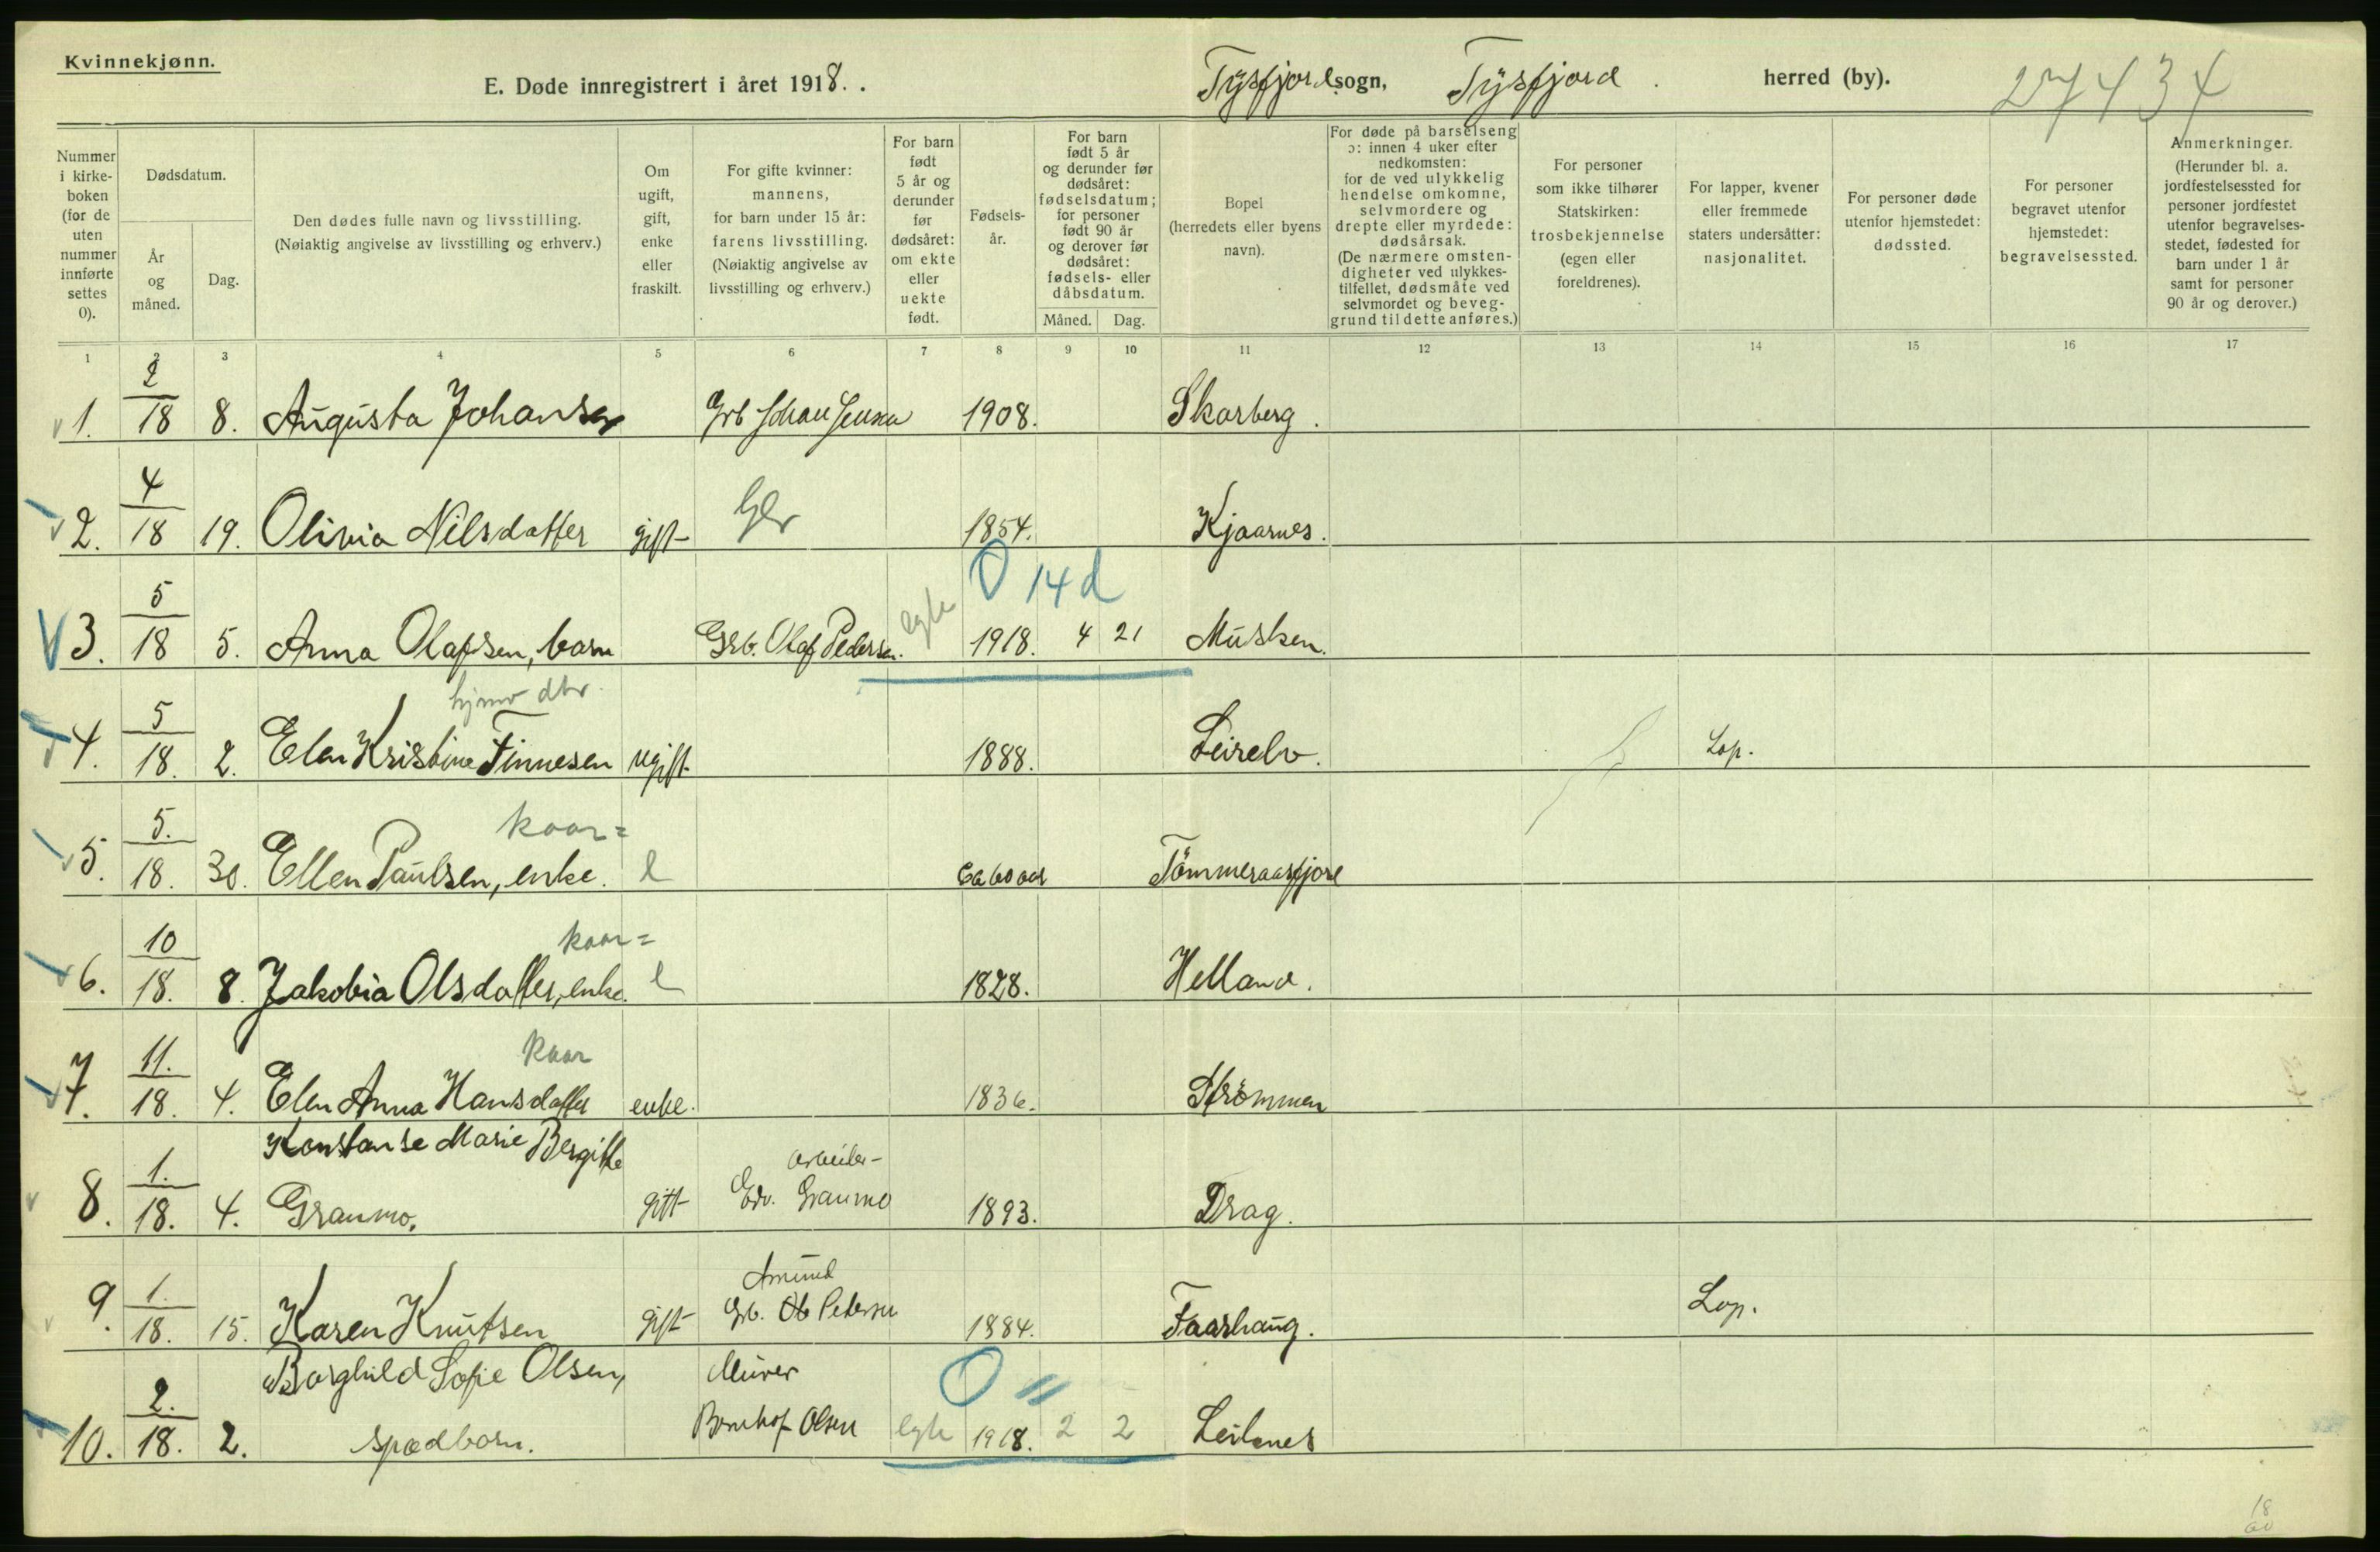 Kvinnekjønn.
E. Døde innregistrert i året 1918. .
Tysfjord sogn, Tysfjord . herred (by).
27434
Nummer i kirke-boken (for de uten nummer innførte settes 0).
Dødsdatum.
År og måned.
Dag.
Den dødes fulle navn og livsstilling.
(Nøiaktig angivelse av livsstilling og erhverv.)
Om ugift, gift, enke eller fraskilt.
For gifte kvinner: mannens, for barn under 15 år: farens livsstilling. (Nøiaktig angivelse av livsstilling og erhverv.)
For barn født 5 år og derunder før dødsåret: om ekte eller uekte født.
Fødsels-år.
For barn født 5 år og derunder før dødsåret: fødselsdatum; for personer født 90 år og derover før dødsåret: fødsels- eller dåbsdatum.
Måned. Dag.
Bopel (herredets eller byens navn).
For døde på barselseng ɔ: innen 4 uker efter nedkomsten: for de ved ulykkelig hendelse omkomne, selvmordere og drepte eller myrdede: dødsårsak. (De nærmere omsten-digheter ved ulykkes-tilfellet, dødsmåte ved selvmordet og beveg-grund til dette anføres.)
For personer som ikke tilhører Statskirken: trosbekjennelse (egen eller foreldrenes).
For lapper, kvener eller fremmede staters undersåtter: nasjonalitet.
For personer døde utenfor hjemstedet: dødssted.
For personer begravet utenfor hjemstedet: begravelsessted.
Anmerkninger. (Herunder bl. a. jordfestelsessted for personer jordfestet utenfor begravelses-stedet, fødested for barn under 1 år samt for personer 90 år og derover.)
1 2 3 4 5 6 7 8 9 10 11 12 13 14 15 16 17
1. 2/18 8. Augusta Johansen Grb Johan Jensen 1908. Skarberg.
2. 4/18 19. Olivia Nilsdatter gift 1854. Kjaarnes.
0 14 d
3. 5/18 5. Anna Olafsen, barn Grb. Olaf Pedersen. egte 1918. 4 21 Musken.
hjmv dtr.
4. 5/18. 2. Elen Kristine Finnesen ugift 1888. Leirelv. Lap.
kaar=
5. 5./18. 30. Ellen Paulsen, enke. e Ca 60 aar Tömmeraasfjord
kaar=
6. 10/18. 8. Jakobia Olsdatter, enke. e 1828. Helland.
kaar
7. 11./18. 4. Elen Anna Hansdatter enke. 1836. Strömmen
Konstanse Marie Bergitte arbeider-
8. 1./18. 4. Granmo. gift Edv. Granmo 1893. Drag.
Amund
9. 1./18. 15. Karen Knutsen gift Grb. Peterssen 1884. Faarhaug. Lap.
Borghild Sofie Olsen, Murer 0
10. 2./18. 2. spædbarn. Bernhof Olsen egte 1918. 2 2 Leilnes
18